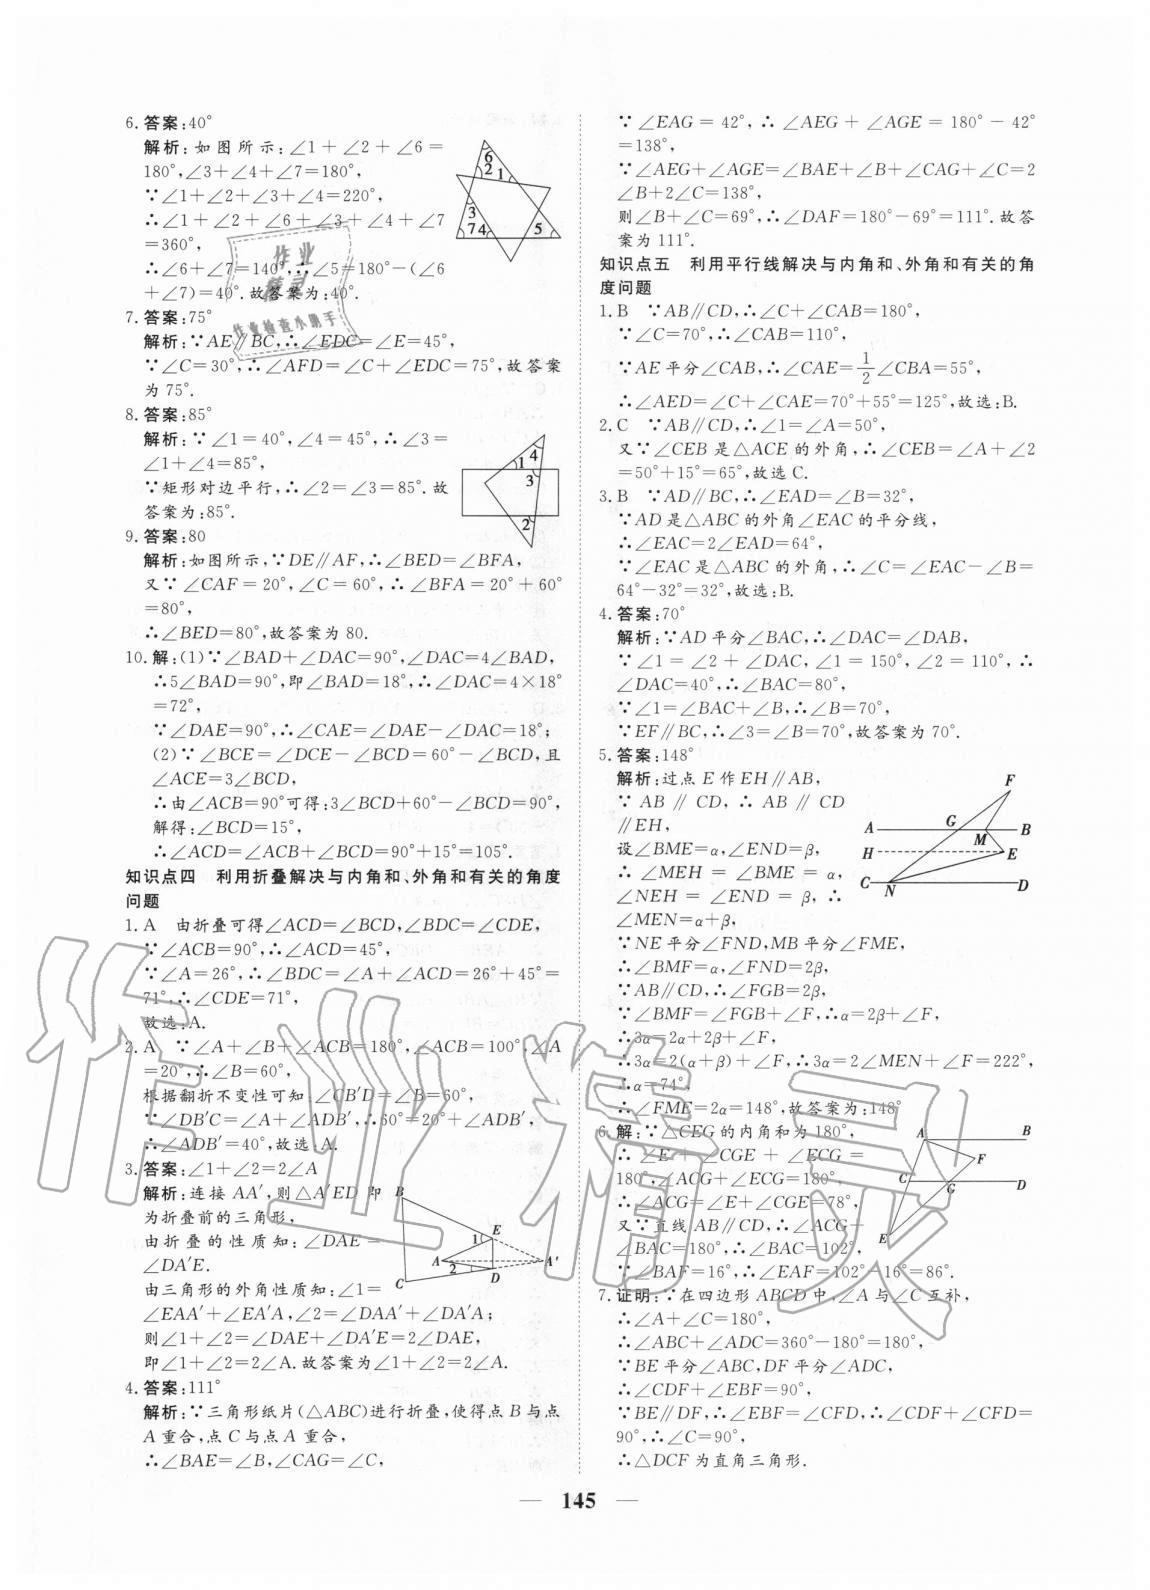 6. 答案:40°
解析:如图所示:∠1+∠2+∠6=
180°,∠3+∠4+∠7=180°,
∵∠1+∠2+∠3+∠4=220°,
∴∠1+∠2+∠6+∠3+∠4+∠7
=360°,
∴∠6+∠7=140°,∴∠5=180°-(∠6
+∠7)=40°.故答案为:40°.
7. 答案:75°
解析:∵AE∥BC,∴∠EDC=∠E=45°,
∵∠C=30°,∴∠AFD=∠C+∠EDC=75°,故答案
为75°.
8. 答案:85°
解析:∵∠1=40°,∠4=45°,∴∠3=
∠1+∠4=85°,
∵矩形对边平行,∴∠2=∠3=85°.故
答案为:85°.
9. 答案:80
解析:如图所示,∵DE∥AF,∴∠BED=∠BFA,
又∵∠CAF=20°,∠C=60°,∴∠BFA=20°+60°
=80°,
∴∠BED=80°,故答案为80.
10. 解:(1)∵∠BAD+∠DAC=90°,∠DAC=4∠BAD,
∴5∠BAD=90°,即∠BAD=18°,∴∠DAC=4×18°
=72°,
∵∠DAE=90°,∴∠CAE=∠DAE-∠DAC=18°;
(2)∵∠BCE=∠DCE-∠BCD=60°-∠BCD,且
∠ACE=3∠BCD,
∴由∠ACB=90°可得:3∠BCD+60°-∠BCD=90°,
解得:∠BCD=15°,
∴∠ACD=∠ACB+∠BCD=90°+15°=105°.
知识点四 利用折叠解决与内角和、外角和有关的角度
问题
1. A 由折叠可得∠ACD=∠BCD,∠BDC=∠CDE,
∵∠ACB=90°,∴∠ACD=45°,
∵∠A=26°,∴∠BDC=∠A+∠ACD=26°+45°=
71°,∴∠CDE=71°,
故选:A.
2. A ∵∠A+∠B+∠ACB=180°,∠ACB=100°,∠A
=20°,∴∠B=60°,
根据翻折不变性可知:∠CB′D=∠B=60°,
∵∠DB′C=∠A+∠ADB′,∴60°=20°+∠ADB′,
∴∠ADB′=40°,故选:A.
3. 答案:∠1+∠2=2∠A
解析:连接AA′,则△A′ED即
为折叠前的三角形,
由折叠的性质知:∠DAE=
∠DA′E.
由三角形的外角性质知:∠1=
∠EAA′+∠EA′A,∠2=∠DAA′+∠DA′A;
则∠1+∠2=∠DAE+∠DA′E=2∠DAE,
即∠1+∠2=2∠A.故答案为∠1+∠2=2∠A.
4. 答案:111°
解析:∵三角形纸片(△ABC)进行折叠,使得点B与点
A重合,点C与点A重合,
∴∠BAE=∠B,∠CAG=∠C,
∵∠EAG=42°,∴∠AEG+∠AGE=180°-42°
=138°,
∵∠AEG+∠AGE=∠BAE+∠B+∠CAG+∠C=2
∠B+2∠C=138°,
则∠B+∠C=69°,∴∠DAF=180°-69°=111°.故答
案为111°.
知识点五 利用平行线解决与内角和、外角和有关的角
度问题
1. B ∵AB∥CD,∴∠C+∠CAB=180°,
∵∠C=70°,∴∠CAB=110°,
∵AE平分∠CAB,∴∠CAE=1/2∠CBA=55°,
∴∠AED=∠C+∠CAE=70°+55°=125°,故选:B.
2. C ∵AB∥CD,∴∠1=∠A=50°,
又∵∠CEB是△ACE的外角,∴∠CEB=∠A+∠2
=50°+15°=65°,故选C.
3. B ∵AD∥BC,∴∠EAD=∠B=32°,
∵AD是△ABC的外角∠EAC的平分线,
∴∠EAC=2∠EAD=64°,
∵∠EAC是△ABC的外角,∴∠C=∠EAC-∠B=
64°-32°=32°,故选:B.
4. 答案:70°
解析:∵AD平分∠BAC,∴∠DAC=∠DAB,
∵∠1=∠2+∠DAC,∠1=150°,∠2=110°,∴
∠DAC=40°,∴∠BAC=80°,
∵∠1=∠BAC+∠B,∴∠B=70°,
∵EF∥BC,∴∠3=∠B=70°,故答案为70°.
5. 答案:148°
解析:过点E作EH∥AB,
∵AB∥CD,∴AB∥CD
∥EH,
设∠BME=α,∠END=β,
∴∠MEH=∠BME=α,
∠NEH=∠END=β,∴
∠MEN=α+β,
∵NE平分∠FND,MB平分∠FME,
∴∠BMF=α,∠FND=2β,
∵AB∥CD,∴∠FGB=2β,
∵∠BMF=∠FGB+∠F,∴α=2β+∠F,
∴3α=2α+2β+∠F,
∴3α=2(α+β)+∠F,∴3α=2∠MEN+∠F=222°,
∴α=74°,
∴∠FME=2α=148°,故答案为:148°
6. 解:∵△CEG的内角和为180°,
∴∠E+∠CGE+∠ECG=
180°,∠ACG+∠ECG=180°,
∴∠ACG=∠E+∠CGE=78°,
又∵直线AB∥CD,∴∠ACG+
∠BAC=180°,∴∠BAC=102°,
∵∠BAF=16°,∴∠EAF=102°-16°=86°.
7. 证明:∵在四边形ABCD中,∠A与∠C互补,
∴∠A+∠C=180°,
∴∠ABC+∠ADC=360°-180°=180°,
∵BE平分∠ABC,DF平分∠ADC,
∴∠CDF+∠EBF=90°,
∵BE∥DF,∴∠EBF=∠CFD,∴∠CDF+∠CFD=
90°,∴∠C=90°,
∴△DCF为直角三角形.
— 145 —
作业精灵
作业
精灵
作业检查小助手